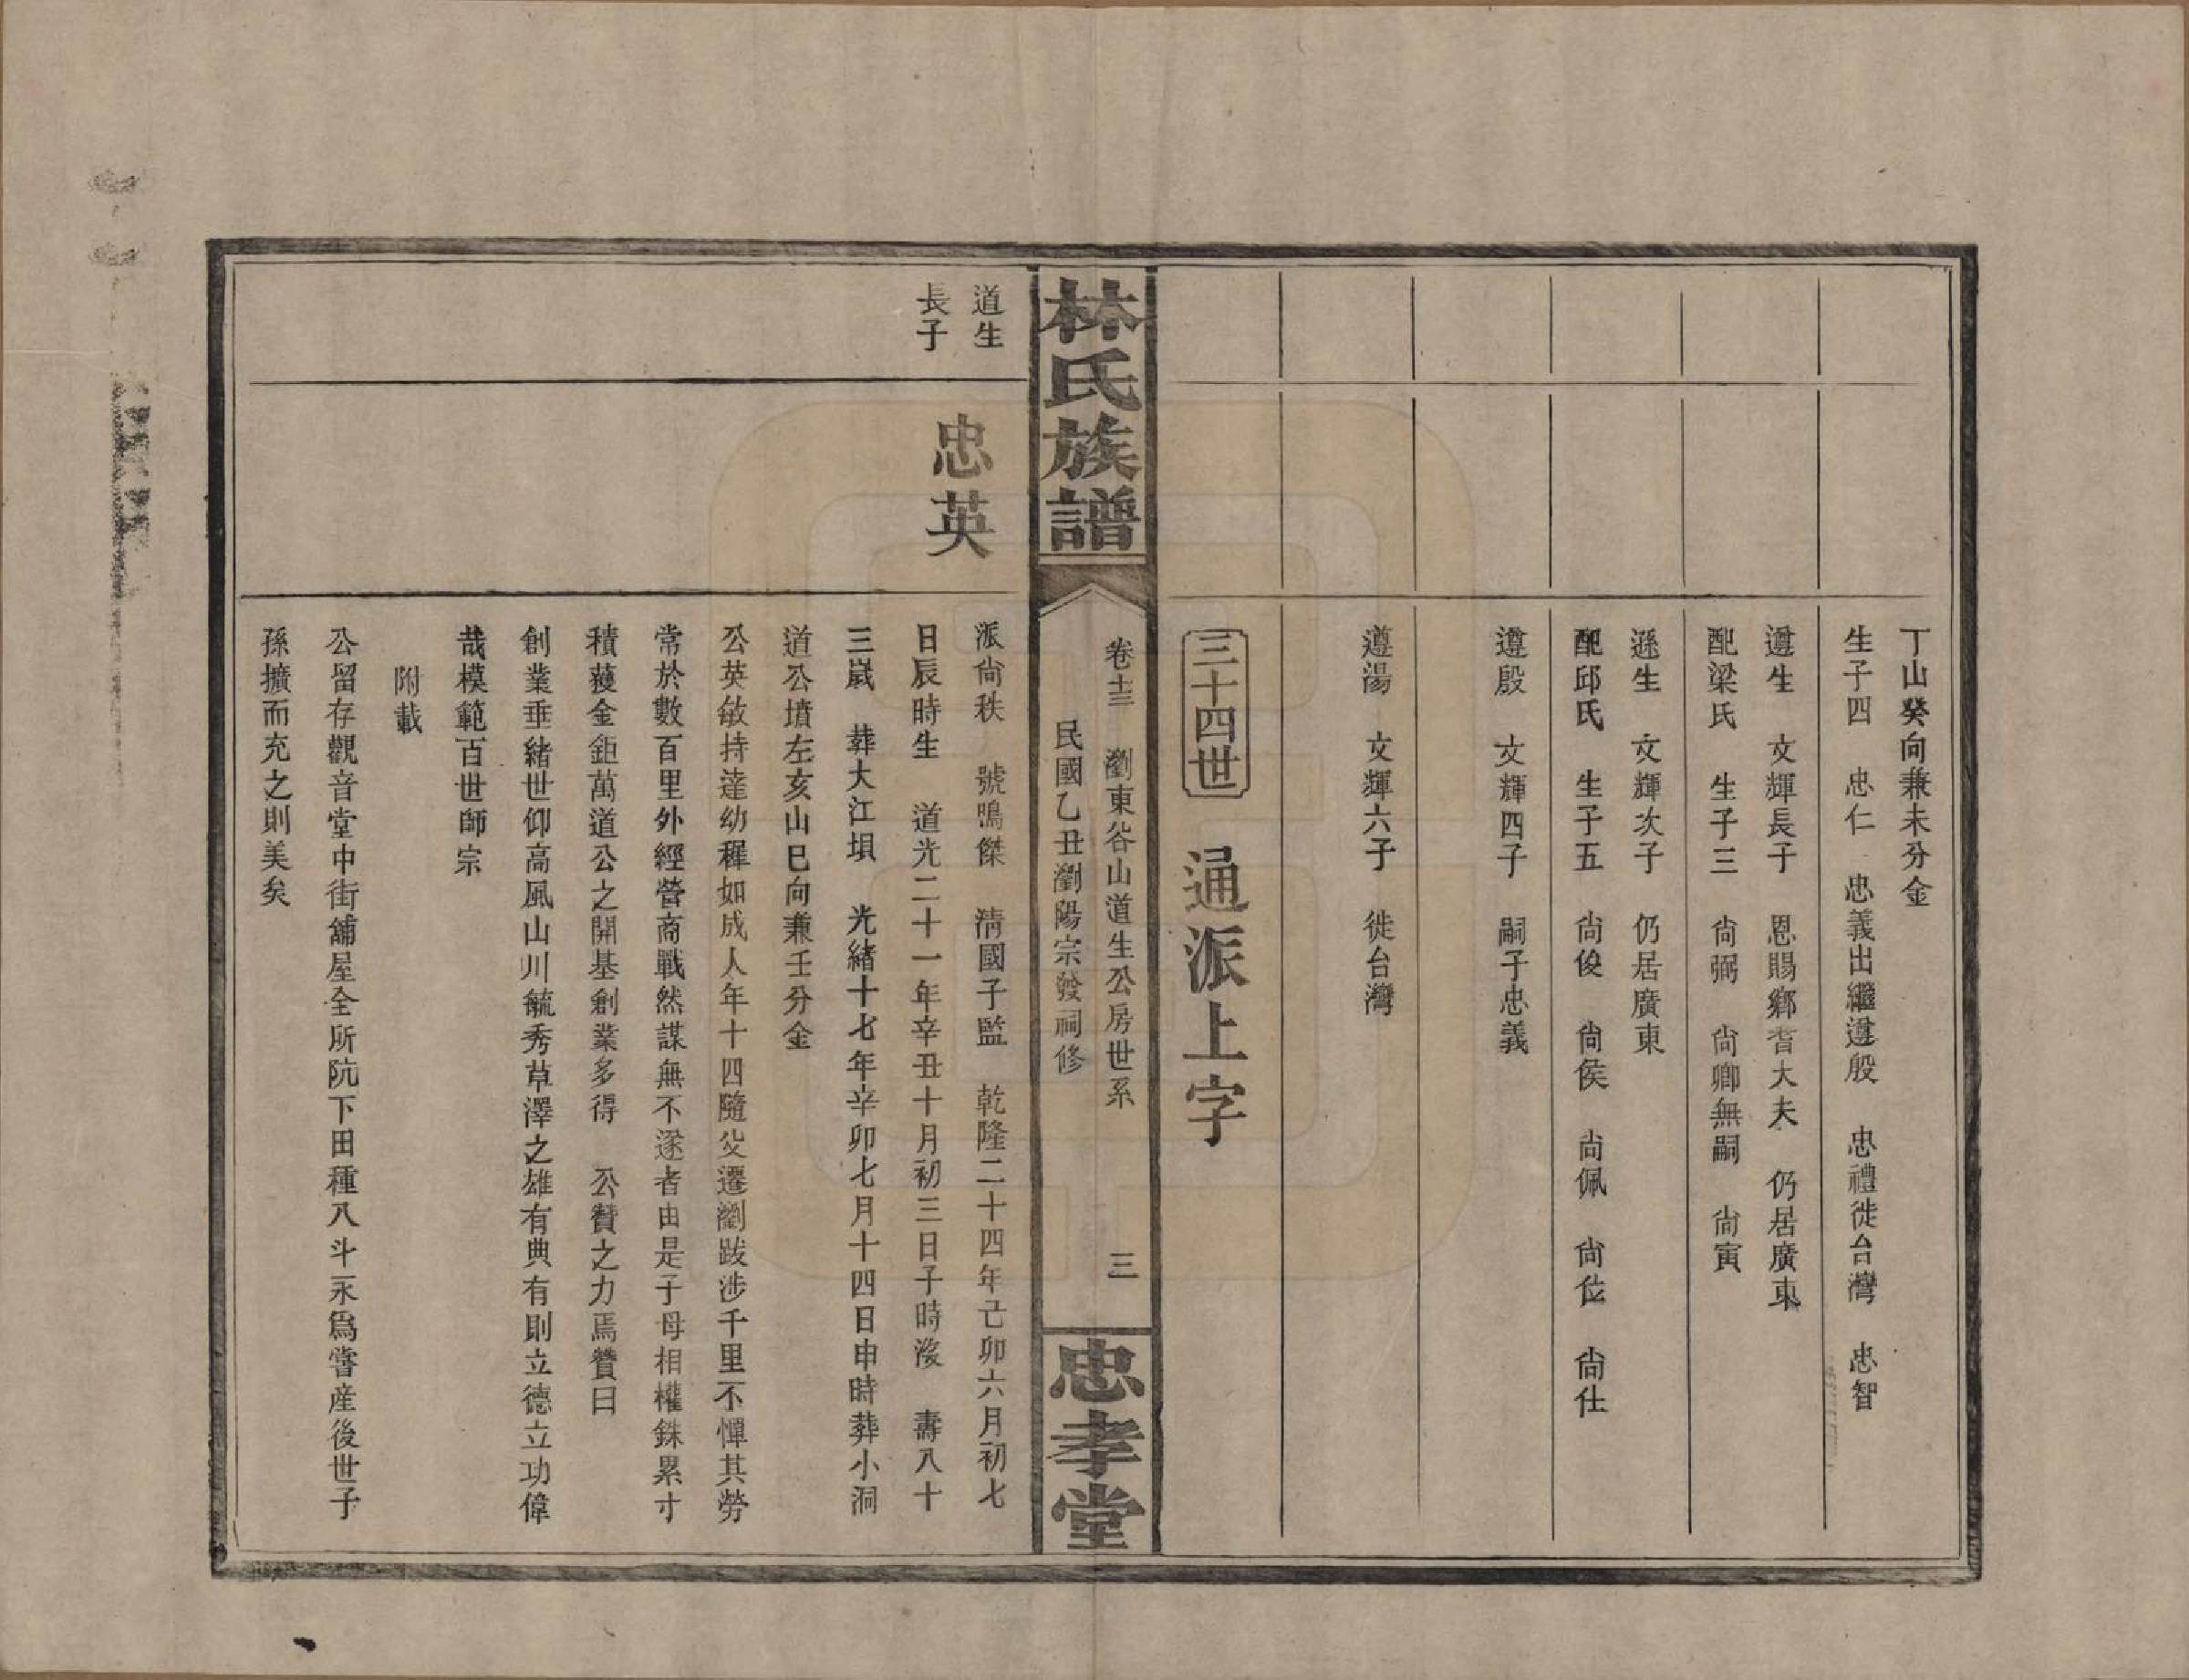 丁山癸向兼未分金
生子四　忠仁　忠義出繼遵殷　忠禮徙台灣　忠智
遵生　文輝長子　恩賜鄉耆大夫　仍居廣東
配梁氏　生子三　尙弼　尙卿無嗣　尙寅
遜生　文輝次子　仍居廣東
配邱氏　生子五　尙俊　尙侯　尙佩　尙位　尙仕
遵殷　文輝四子　嗣子忠義
遵湯　文輝六子　徙台灣
三十四世　通派上字
林氏族譜
卷十三　瀏東谷山道生公房世系　三
民國乙丑瀏陽宗發祠修
忠孝堂
道生
長子
忠英
派尙秩　號鳴傑　淸國子監　乾隆二十四年己卯六月初七
日辰時生　道光二十一年辛丑十月初三日子時歿　壽八十
三歲　葬大江垻　光緖十七年辛卯七月十四日申時葬小洞
道公墳左亥山巳向兼壬分金
公英敏持達幼穉如成人年十四隨父遷瀏跋涉千里不憚其勞
常於數百里外經營商戰然謀無不遂者由是子母相權銖累寸
積獲金鉅萬道公之開基創業多得　公贊之力焉贊曰
創業垂緖世仰高風山川毓秀草澤之雄有典有則立德立功偉
哉模範百世師宗
附載
公留存觀音堂中街舖屋全所阬下田種八斗永爲嘗産後世子
孫擴而充之則美矣